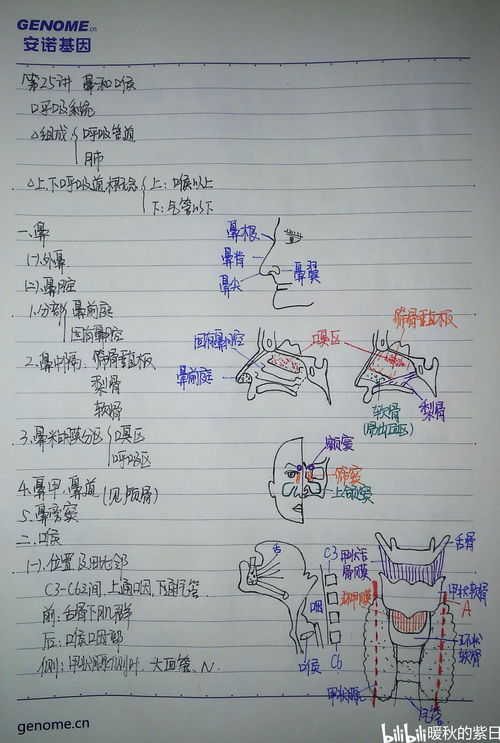 GENOME.cn
安诺基因
第25讲 鼻和喉
呼吸系统
△组成 呼吸管道
肺
△上、下呼吸道概念 上:喉以上
下:气管以下
一、鼻
(一)、外鼻
(二)、鼻腔
1、分部 鼻前庭
固有鼻腔
2、鼻中隔:筛骨垂直板
犁骨
软骨
3、鼻粘膜分区 嗅区
呼吸区
4、鼻甲、鼻道(见颅骨)
5、鼻旁窦
二、喉
(一)、位置及毗邻
C3-C6间,上通咽,下通气管
前:舌骨下肌群
后:喉咽部
侧:甲状腺侧叶、大血管、N.
鼻根
鼻背
鼻尖
鼻翼
固有鼻腔
鼻前庭
嗅区
筛骨垂直板
软骨
(易出血区)
犁骨
额窦
筛窦
上颌窦
舌
C3
咽
喉
C6
甲状舌骨膜
环甲膜
舌骨
甲状软骨
A
环状软骨
甲状腺
气管
genome.cn
bilibili 暖秋的紫日